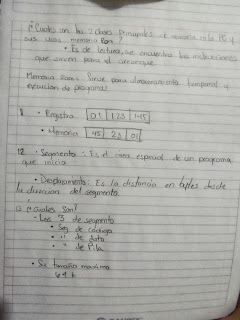 ¿Cuales son las 2 clases principales de memoria en la PC y
sus usos memoria Rom?
• Es de lectura, se encuentra las instrucciones
que sirven para el arranque.
Memoria Ram: Sirve para almacenamiento temporal y
ejecucion de programas
8 • Registro 01 23 45
• Memoria 45 23 01
12 • Segmento: Es el area especial de un programa
que inicia
• Desplazamiento: Es la distancia en bytes desde
la direccion del segmento.
¿Cuales son?
- Los 3 de segmento
• Seg de codigo
• " de data
• " de Pila
• Su tamaño maximo
64 k